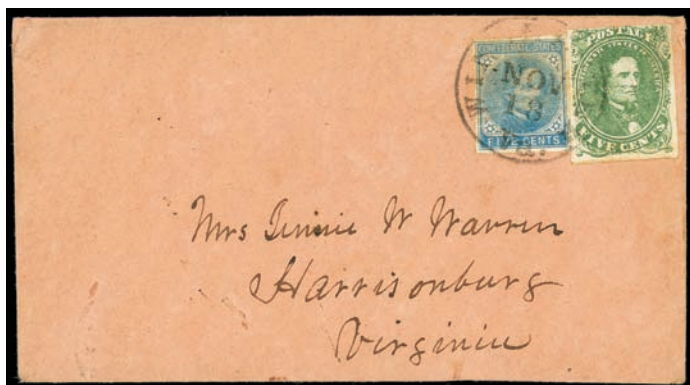 CONFEDERATE STATES
FIVE CENTS
POSTAGE
FIVE CENTS
NOV
18
Va.
Mrs Jennie W Warren
Harrisonburg
Virginia